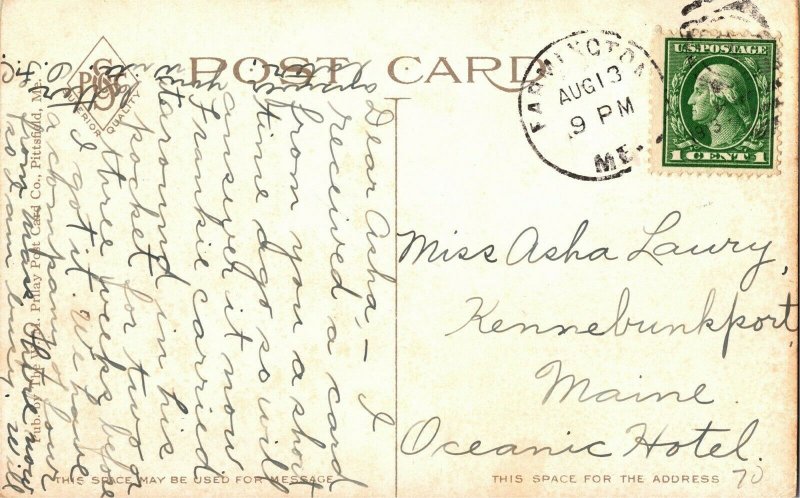 POST CARD
SUPERIOR QUALITY
FARMINGTON
AUG 13
9 PM
ME.
U.S. POSTAGE
1 CENT 1
Dear Asha, – I
received a card
from you a short
time ago so will
answer it now
Frankie carried
it around in his
pocket for two or
three weeks before
I got it. We have
company now
so am busy.
Miss Asha Laury,
Kennebunkport
Maine
Oceanic Hotel.
70
Pub. by The W. J. Prilay Post Card Co., Pittsfield, Me.
THIS SPACE MAY BE USED FOR MESSAGE
THIS SPACE FOR THE ADDRESS